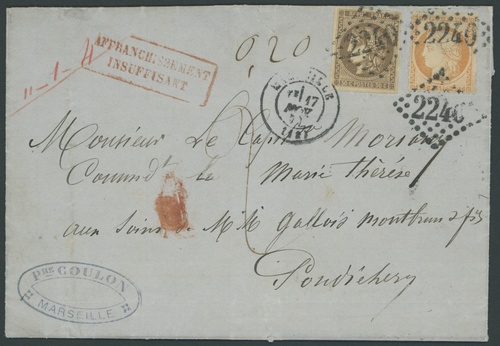 0,20
AFFRANCHISSEMENT
INSUFFISANT
2240
2240
2240
MARSEILLE
17
NOV.
Monsieur Le Capne
Commdt la Marie Thérèse
aux soins de MM Gallois Montbrun & fils
Pondichery
PRE COULON
MARSEILLE